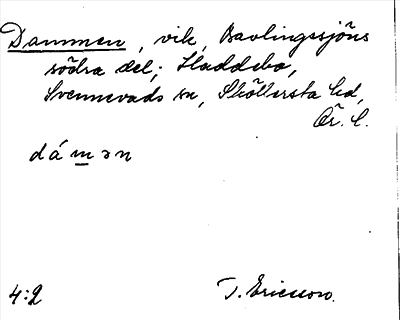 Dammen, vik, Bavlingssjöns
södra del; Haddebo,
Svennevads sn, Sköllersta hd,
Ör. l.
dámən
4:2
T. Ericsson.